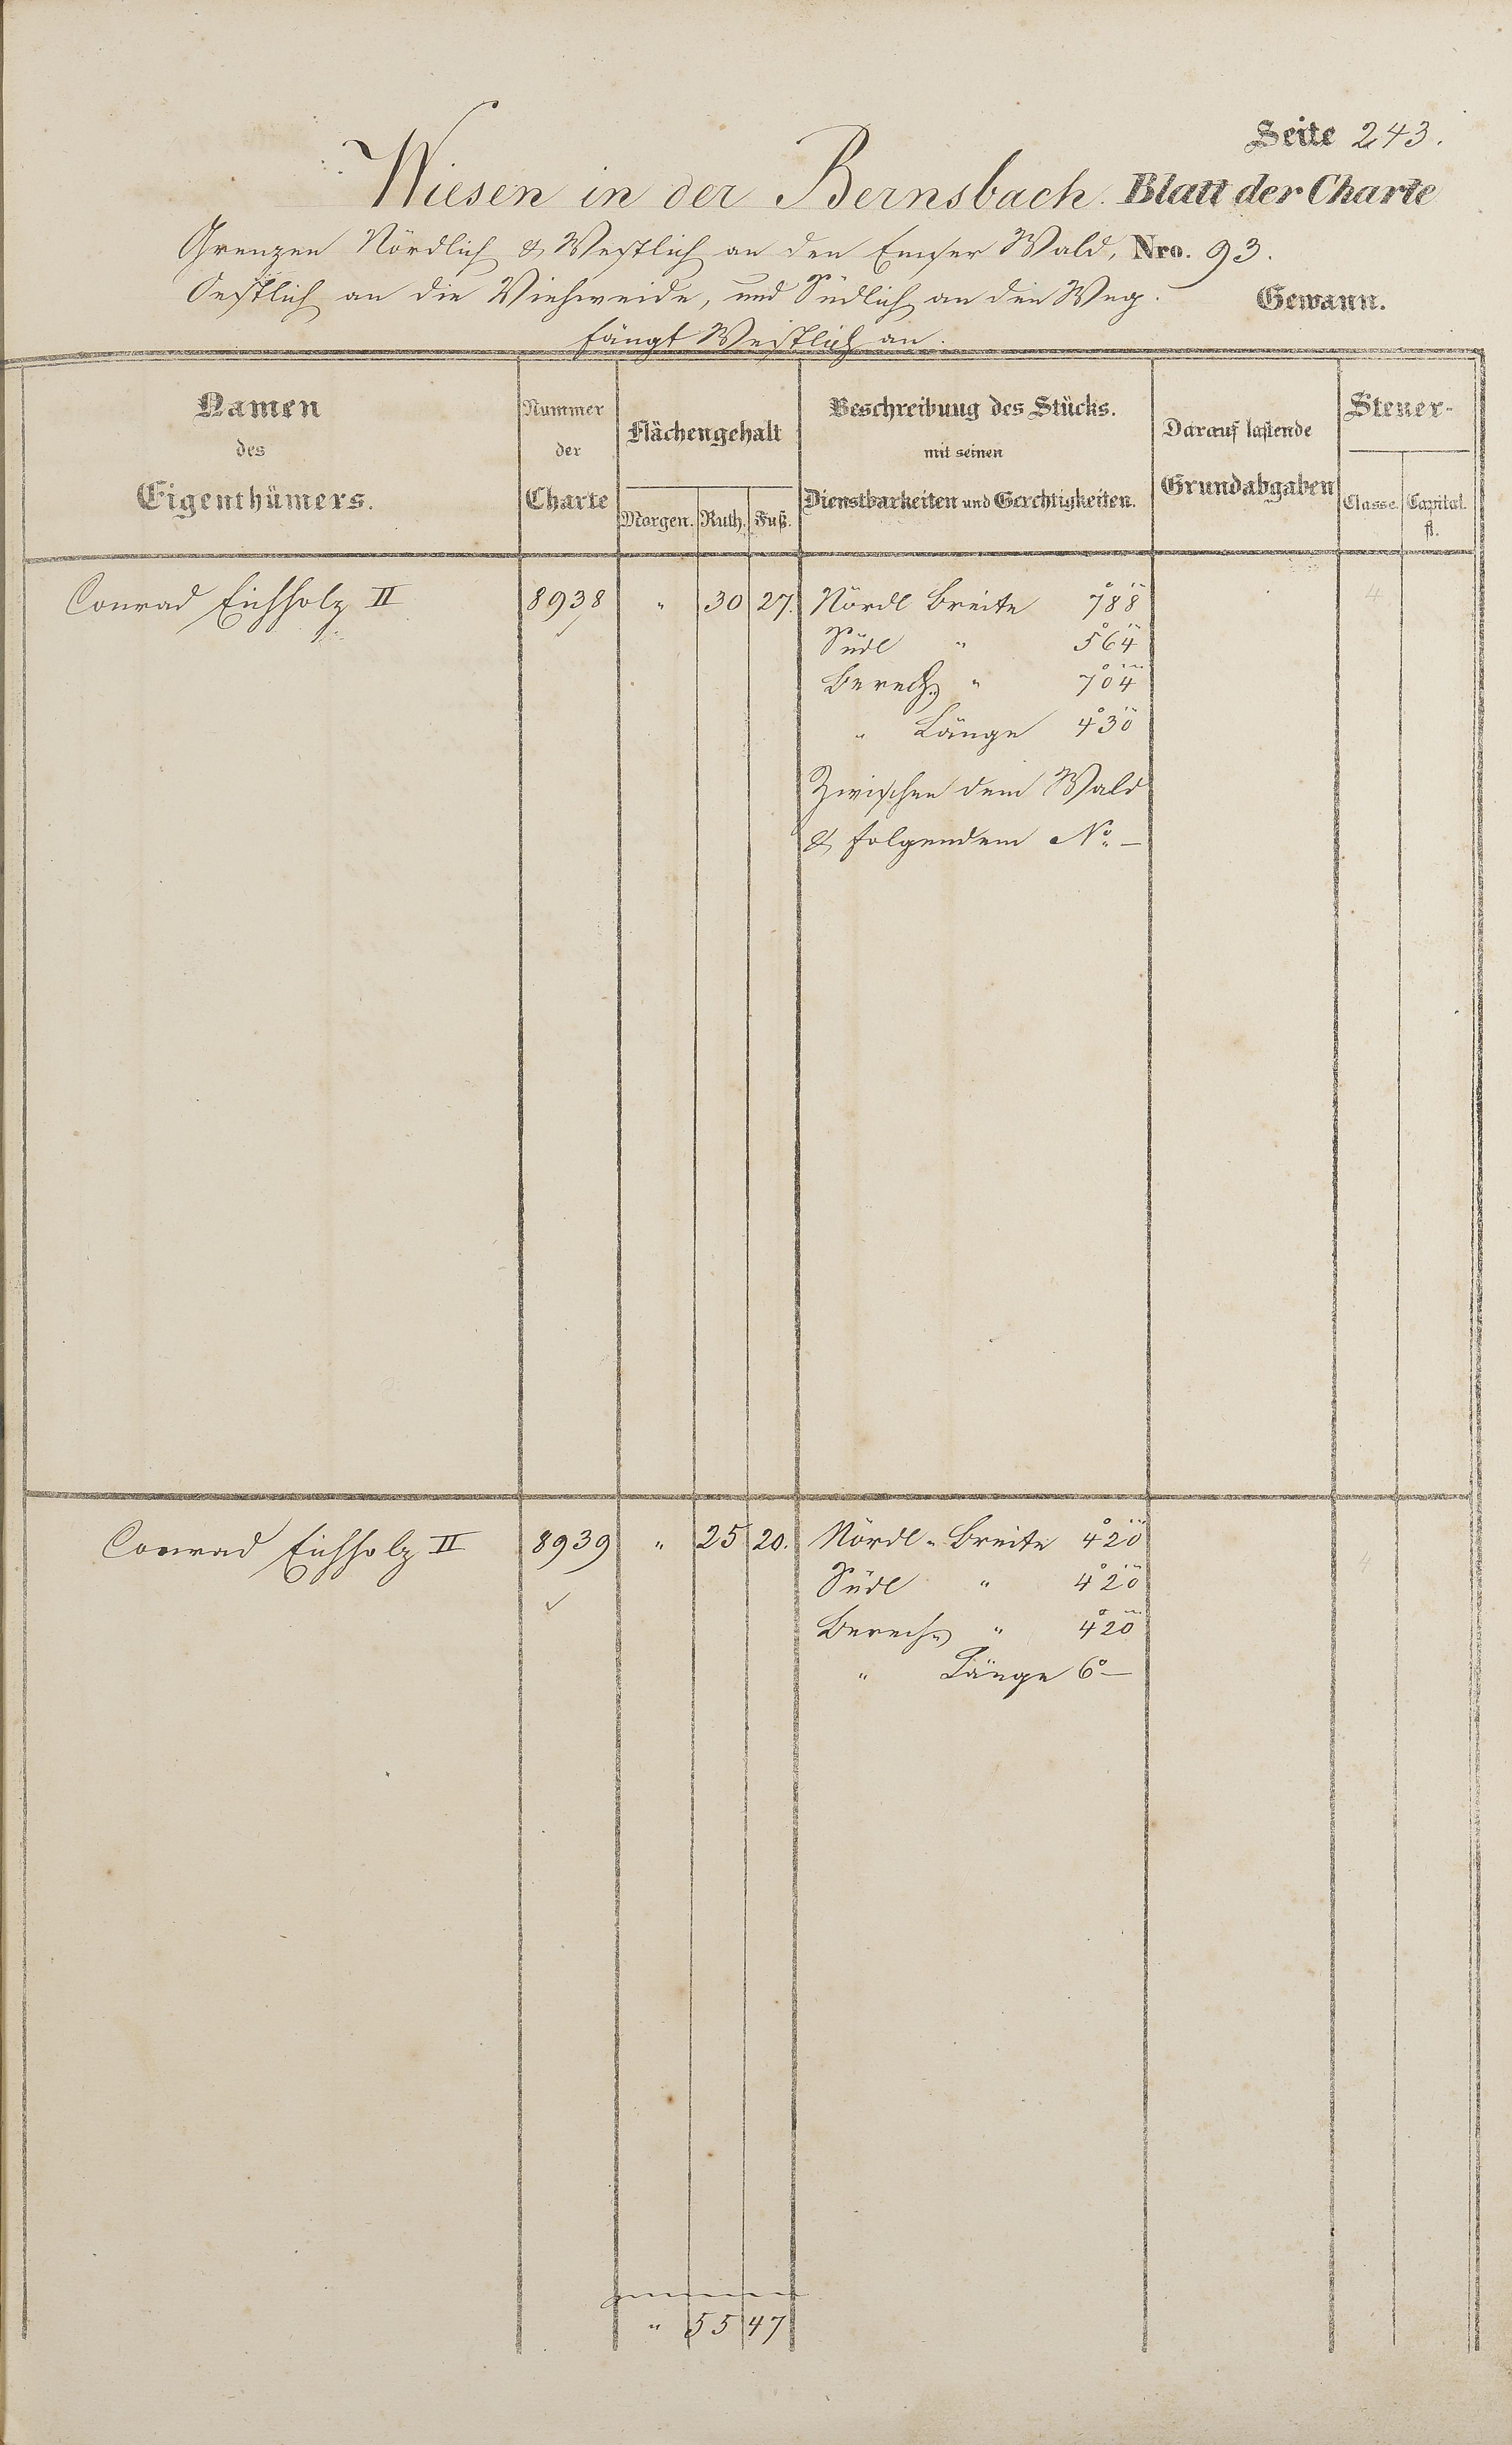 Seite 243.
Wiesen in der Bernsbach. Blatt der Charte
Grenzen Nördlich & Westlich an den Emser Wald, Nro. 93.
Oestlich an die Viehweide, und Südlich an den Weg. Gewann.
fängt Westlich an.
Namen des Eigenthümers.
Nummer der Charte
Flächengehalt
Morgen. Ruth. Fuß.
Beschreibung des Stücks. mit seinen Dienstbarkeiten und Gerechtigkeiten.
Darauf lastende Grundabgaben
Steuer-
Classe. Capital. fl.
Conrad Eichholz II 8938 " 30 27. Nördl Breite 7° 88 4
Südl " 5° 64
Berech. " 7° 04
" Länge 4° 30
Zwischen dem Wald
& folgendem No. —
Conrad Eichholz II 8939 " 25 20. Nördl. Breite 4° 20 4
Südl " 4° 20
Berech. " 4° 20
" Länge 6° —
" 55 47